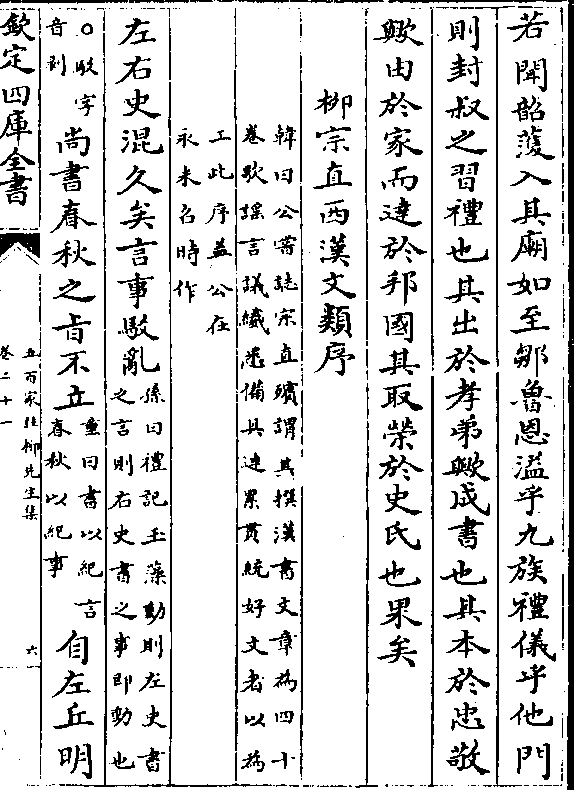 若聞韶濩入其廟如至鄒魯恩溢乎九族禮儀乎他門
則封叔之習禮也其出於孝弟歟成書也其本於忠敬
歟由於家而達於邦國其取榮於史氏也果矣
柳宗直西漢文類序
韓曰公嘗誌宗直殯謂其撰漢書文章為四十
卷歌謡言議纖悉備具連累貫統好文者以為
工此序葢公在
永未召時作
左右史混久矣言事駮亂
孫曰禮記玉藻動則左史書
之言則右史書之事即動也
○駮字
音剥
尚書春秋之旨不立
童曰書以紀言
春秋以紀事
自左丘明
欽定四庫全書
五百家註柳先生集
卷二十一
六